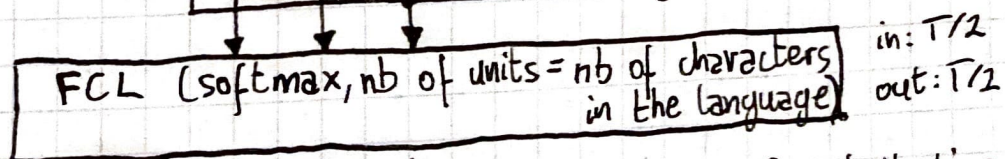 FCL (softmax, nb of units = nb of characters
in the language)
in: T/2
out: T/2